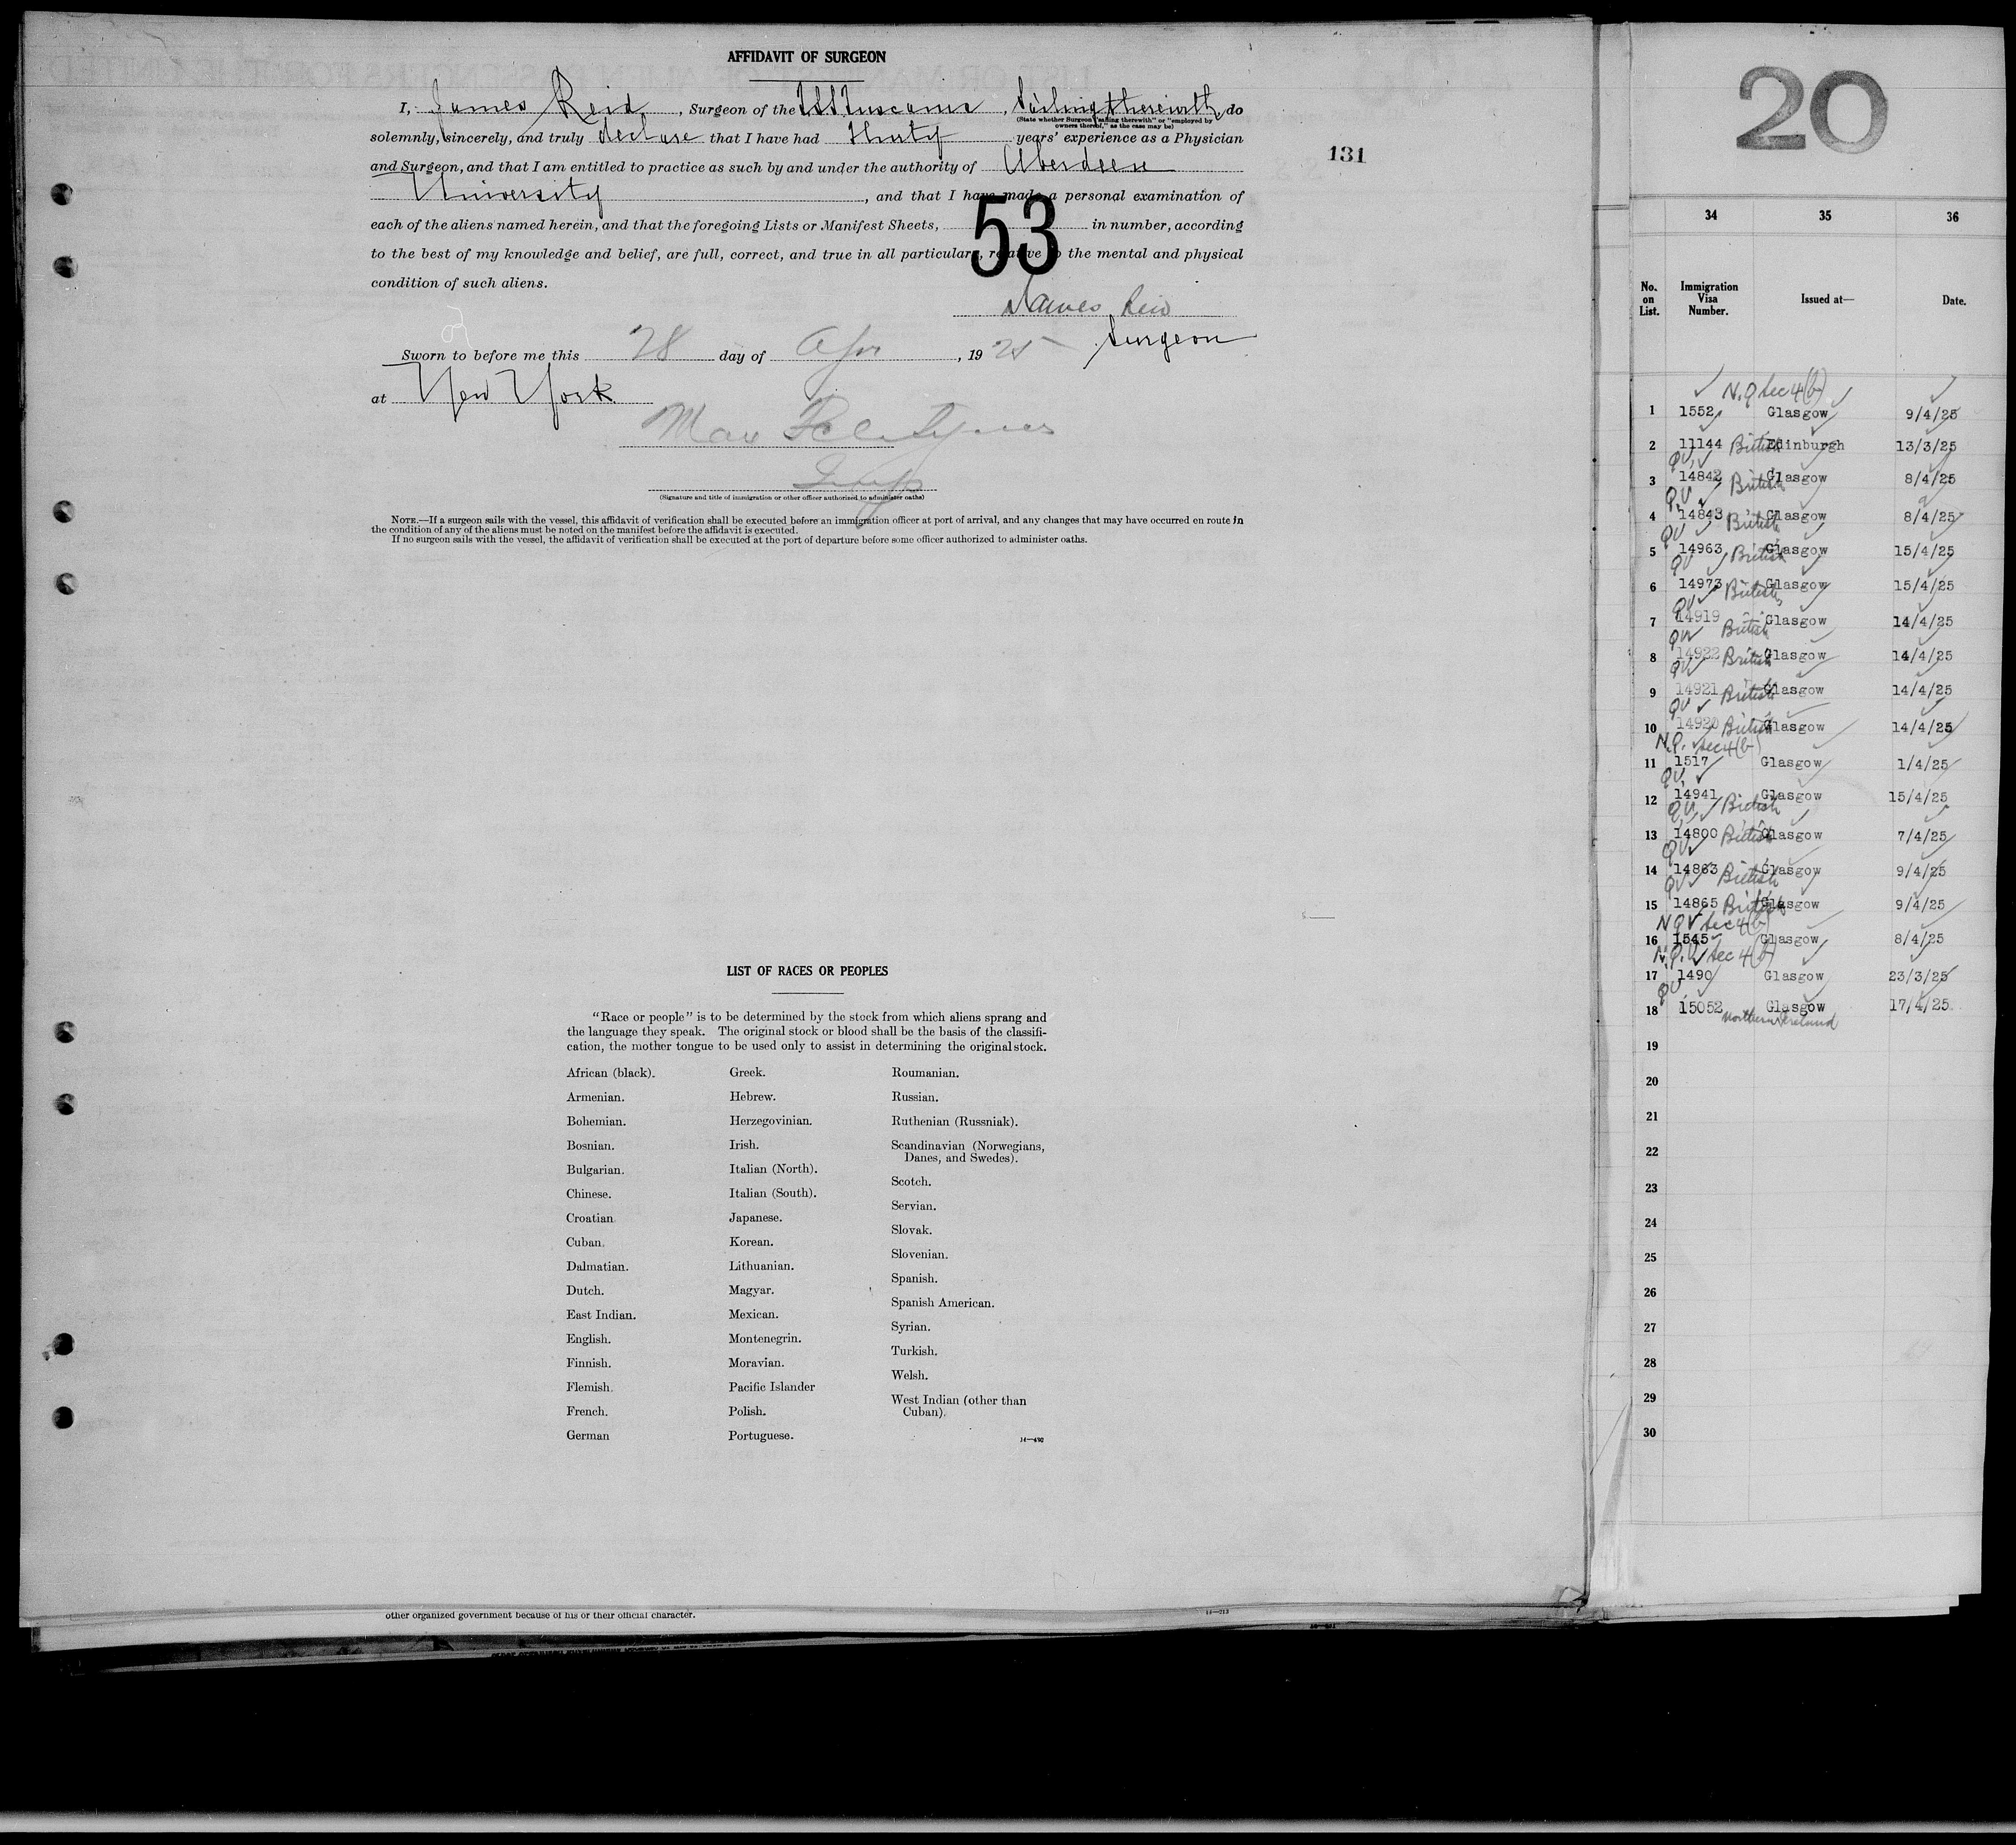 AFFIDAVIT OF SURGEON
I, James Reid, Surgeon of the T.S.S. Tuscania, Sailing therewith, do
(State whether Surgeon "sailing therewith" or "employed by
owners thereof," as the case may be)
solemnly, sincerely, and truly declare that I have had Thirty years' experience as a Physician
and Surgeon, and that I am entitled to practice as such by and under the authority of Aberdeen
University, and that I have made a personal examination of
each of the aliens named herein, and that the foregoing Lists or Manifest Sheets, 53 in number, according
to the best of my knowledge and belief, are full, correct, and true in all particulars, relative to the mental and physical
condition of such aliens.
James Reid
Surgeon
Sworn to before me this 28 day of Apr, 1925
at New York
Max
Insp
(Signature and title of immigration or other officer authorized to administer oaths)
NOTE.—If a surgeon sails with the vessel, this affidavit of verification shall be executed before an immigration officer at port of arrival, and any changes that may have occurred en route in
the condition of any of the aliens must be noted on the manifest before the affidavit is executed.
If no surgeon sails with the vessel, the affidavit of verification shall be executed at the port of departure before some officer authorized to administer oaths.
131
LIST OF RACES OR PEOPLES
"Race or people" is to be determined by the stock from which aliens sprang and
the language they speak. The original stock or blood shall be the basis of the classifi-
cation, the mother tongue to be used only to assist in determining the original stock.
African (black).
Armenian.
Bohemian.
Bosnian.
Bulgarian.
Chinese.
Croatian
Cuban.
Dalmatian.
Dutch.
East Indian.
English.
Finnish.
Flemish.
French.
German
Greek.
Hebrew.
Herzegovinian.
Irish.
Italian (North).
Italian (South).
Japanese.
Korean.
Lithuanian.
Magyar.
Mexican.
Montenegrin.
Moravian.
Pacific Islander
Polish.
Portuguese.
Roumanian.
Russian.
Ruthenian (Russniak).
Scandinavian (Norwegians,
Danes, and Swedes).
Scotch.
Servian.
Slovak.
Slovenian.
Spanish.
Spanish American.
Syrian.
Turkish.
Welsh.
West Indian (other than
Cuban).
14—490
other organized government because of his or their official character.
14—213
20
34 35 36
No. on List. Immigration Visa Number. Issued at— Date.
N.Q sec 4(b)
1 1552 Glasgow 9/4/25
2 11144 British Edinburgh 13/3/25
QV
3 14842 British Glasgow 8/4/25
QV
4 14843 British Glasgow 8/4/25
QV
5 14963 British Glasgow 15/4/25
QV
6 14973 British Glasgow 15/4/25
QV
7 14919 British Glasgow 14/4/25
QV
8 14922 British Glasgow 14/4/25
QV
9 14921 British Glasgow 14/4/25
QV
10 14920 British Glasgow 14/4/25
N.Q. sec 4(b)
11 1517 Glasgow 1/4/25
QV
12 14941 British Glasgow 15/4/25
QV
13 14800 British Glasgow 7/4/25
QV
14 14863 British Glasgow 9/4/25
QV
15 14865 British Glasgow 9/4/25
NQV sec 4(b)
16 1545 Glasgow 8/4/25
N.Q.V sec 4(b)
17 1490 Glasgow 23/3/25
QV
18 15052 Glasgow 17/4/25
Northern Ireland
19
20
21
22
23
24
25
26
27
28
29
30